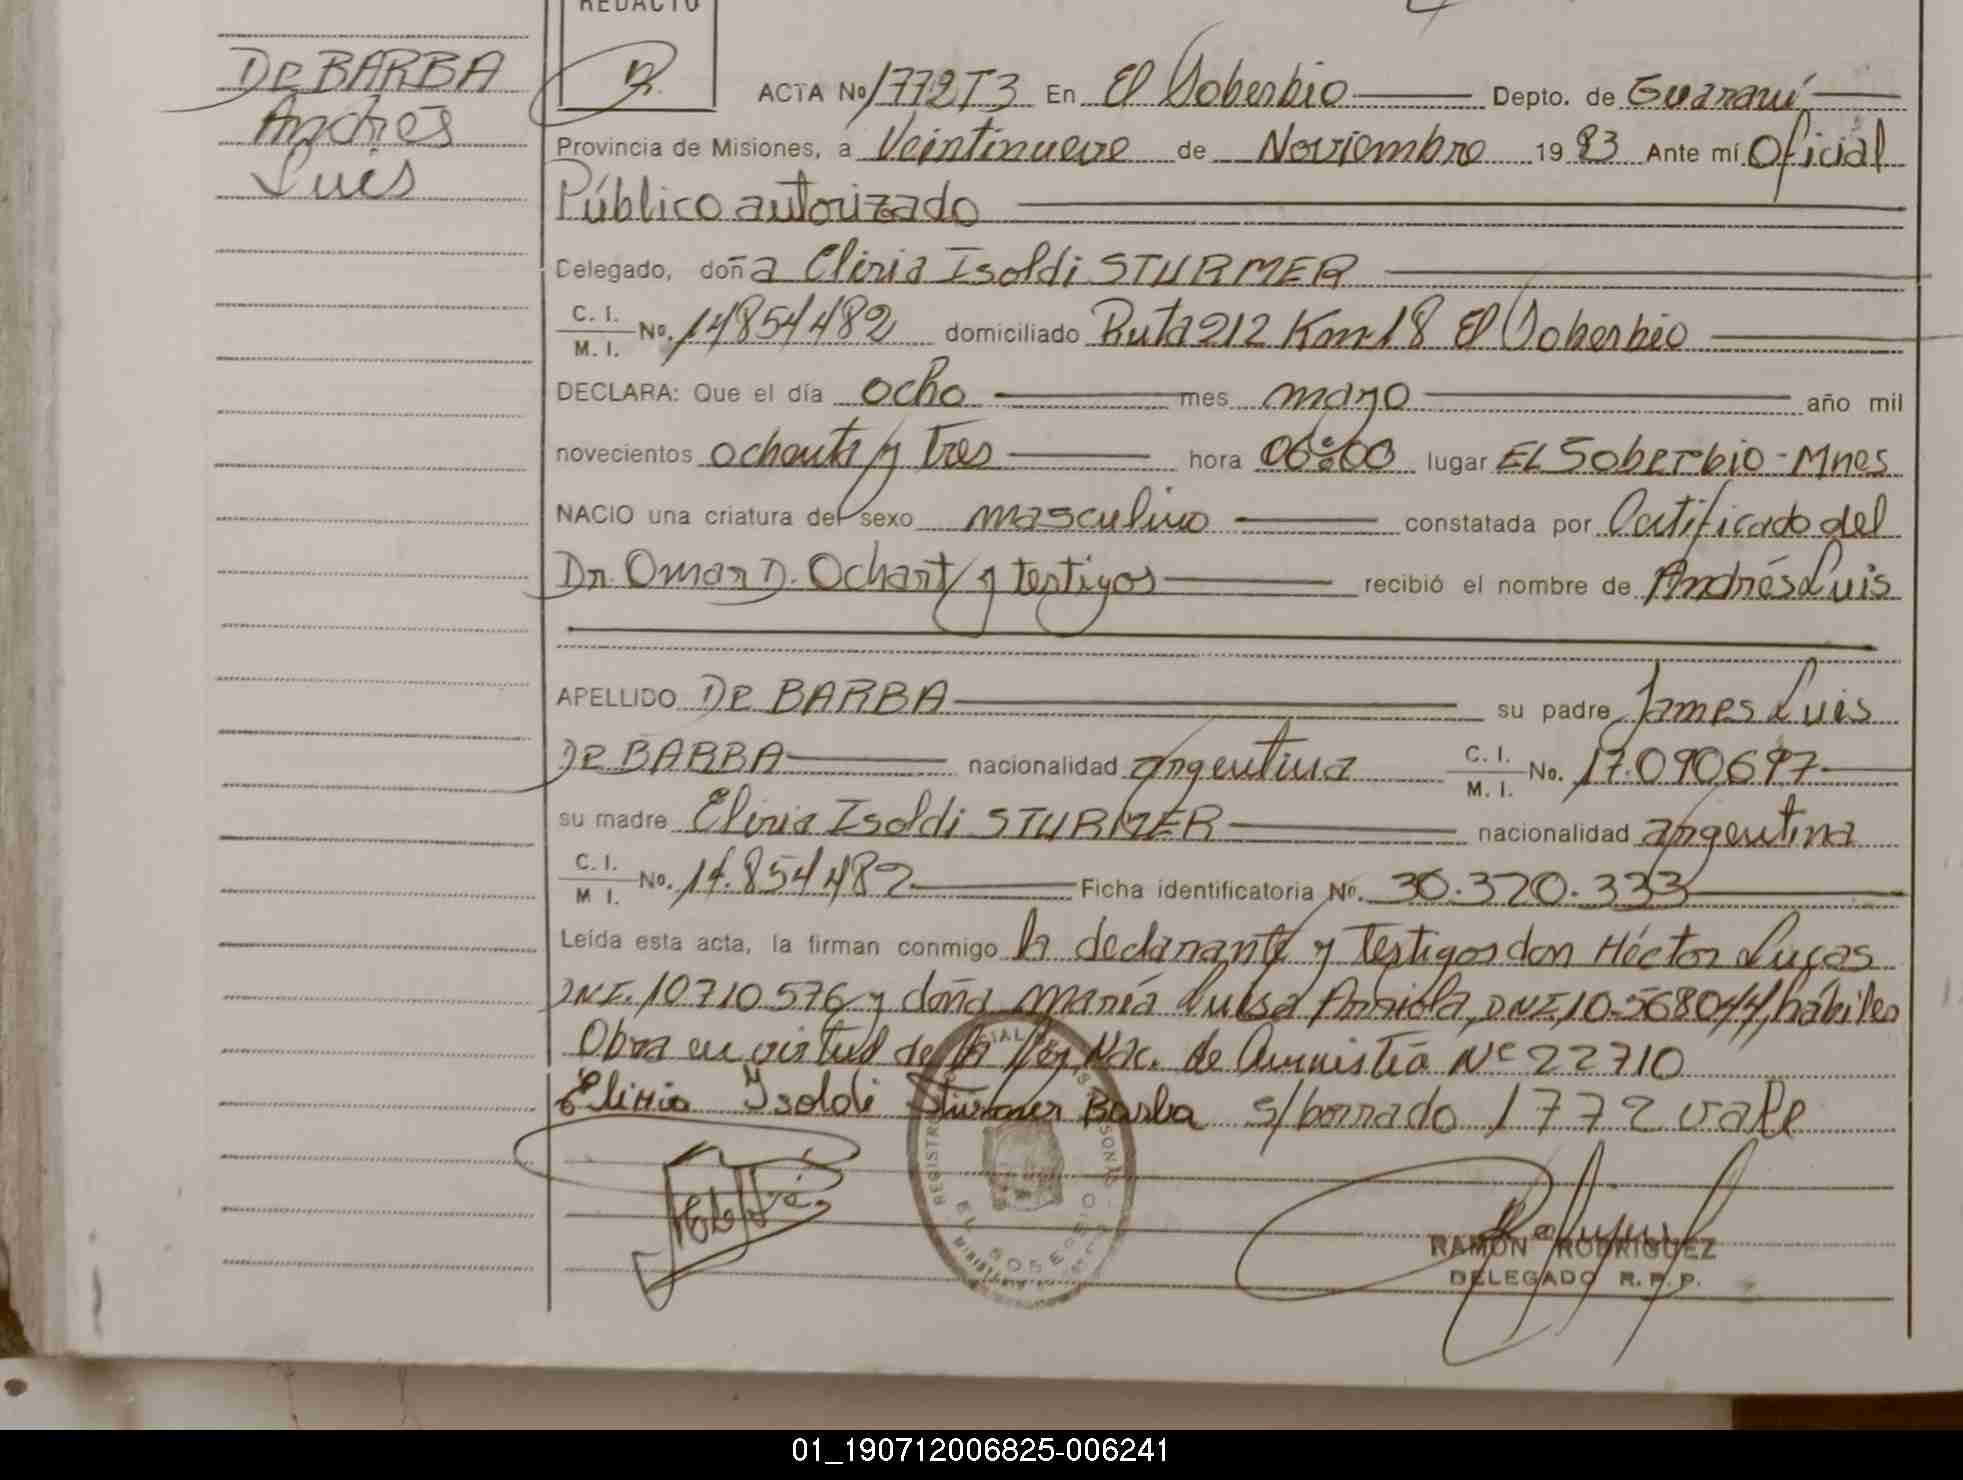 REDACTO
De BARBA
Andrés
Luis
ACTA No 1772T3 En El Soberbio Depto. de Guaraní
Provincia de Misiones, a Veintinueve de Noviembre 19 83 Ante mí Oficial
Público autorizado
Delegado, doña Eliria Isoldi STURMER
C. I. M. I. No. 14854482 domiciliado Ruta 212 Km 18 El Soberbio
DECLARA: Que el día ocho mes mayo año mil
novecientos ochenta y tres hora 06:00 lugar EL Soberbio - Mnes
NACIO una criatura del sexo masculino constatada por Certificado del
Dr. Omar D. Ochart y testigos recibió el nombre de Andrés Luis
APELLIDO De BARBA su padre James Luis
De BARBA nacionalidad argentina C. I. M. I. No. 17.090697
su madre Eliria Isoldi STURMER nacionalidad argentina
C. I. M I. No. 14.854482 Ficha identificatoria No. 30.320.333
Leída esta acta, la firman conmigo la declarante y Testigos don Héctor Lucas
DNI. 10710576 y doña María Luisa Arriola, DNI, 10.568044, hábiles
Obra en virtud de la Ley Nac. de Amnistía Nº 22710
Eliria Isoldi Sturmer Barba s/borrado 1772 vale
RAMON RODRIGUEZ
DELEGADO R. P. P.
01_190712006825-006241